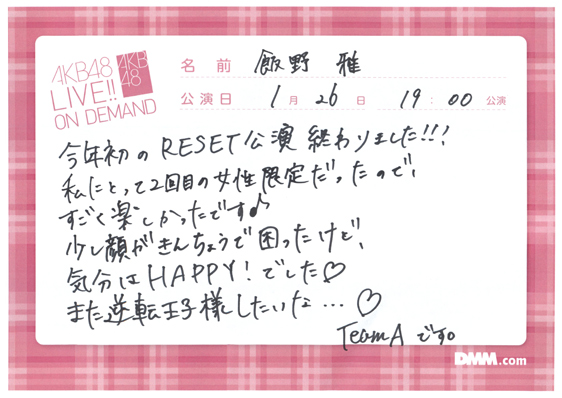 AKB48
LIVE!!
ON DEMAND
AKB
48
名前 飯野 雅
公演日 1月26日 19:00公演
今年初のRESET公演 終わりました!!!
私にとって2回目の女性限定だったので、
すごく楽しかったです♪
少し顔がきんちょうで困ったけど、
気分はHAPPY!でした♡
また逆転王子様したいな…♡
TeamAです。
DMM.com